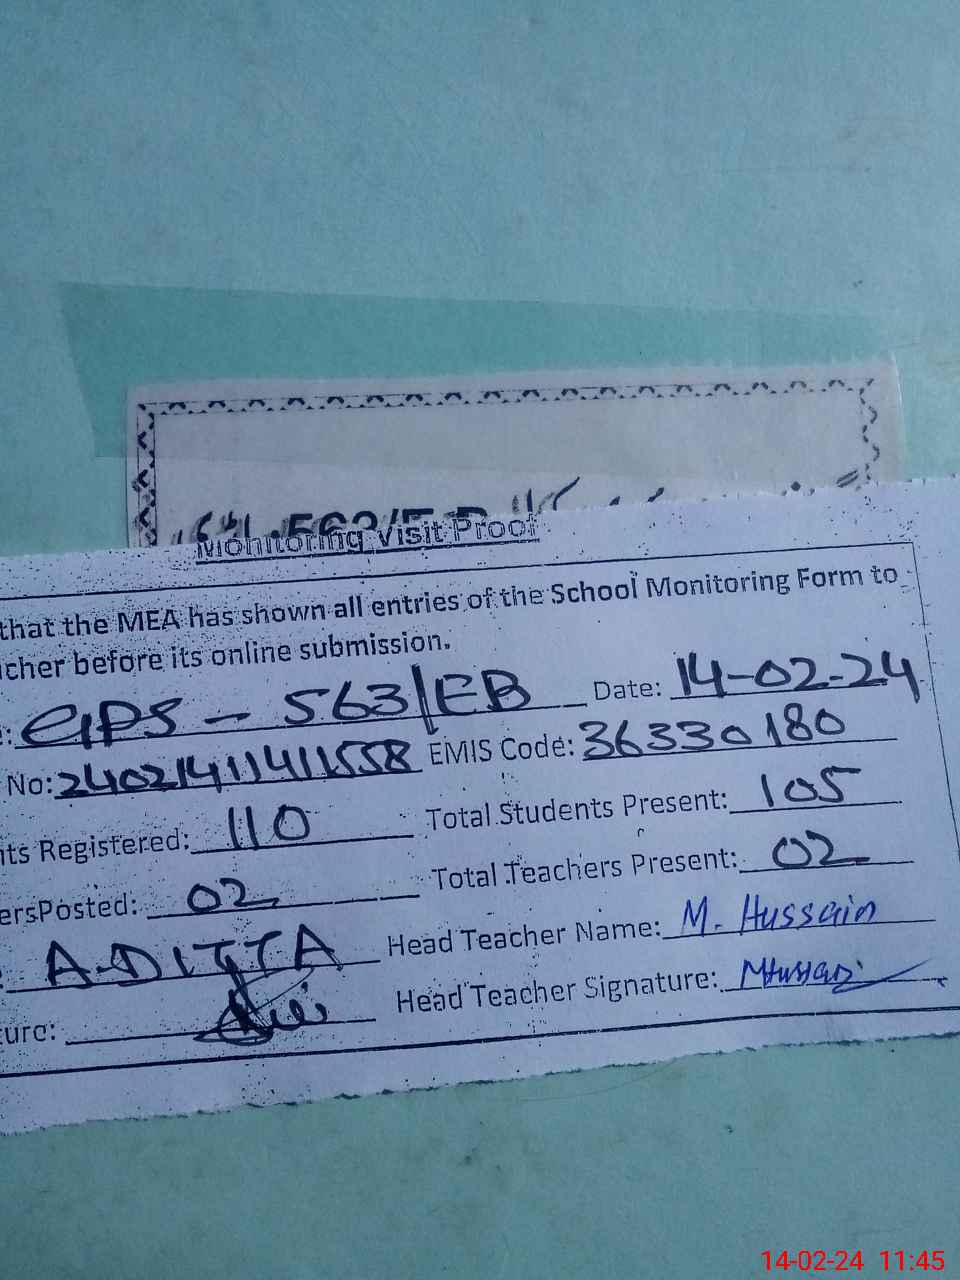 563/E.B
Monitoring Visit Proof
that the MEA has shown all entries of the School Monitoring Form to
cher before its online submission.
: GPS - 563/EB Date: 14-02-24
No: 24021411411558 EMIS Code: 36330180
ts Registered: 110 Total Students Present: 105
ersPosted: 02 Total Teachers Present: 02
: A.DITTA Head Teacher Name: M. Hussain
ture: Head Teacher Signature: MHussain
14-02-24 11:45